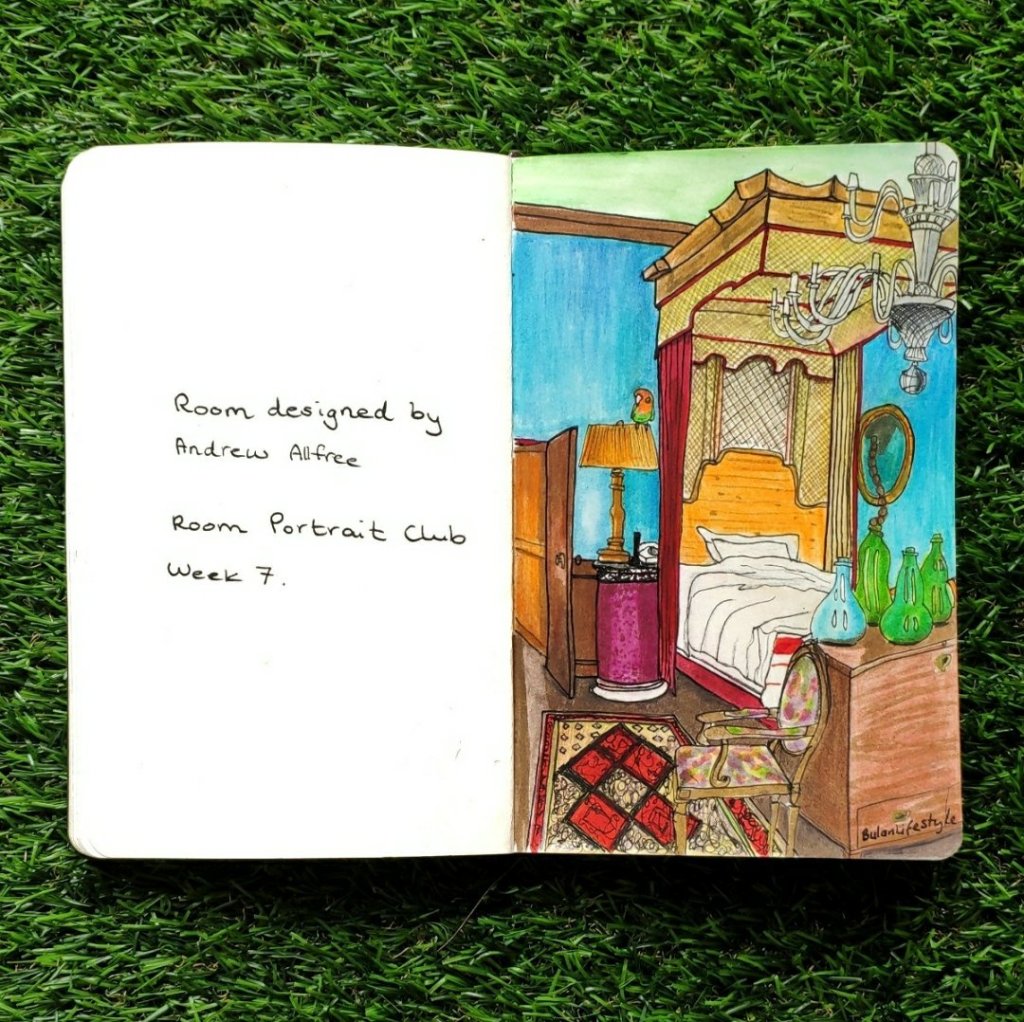 Room designed by
Andrew Allfree
Room Portrait Club
Week 7.
BulanLifestyle